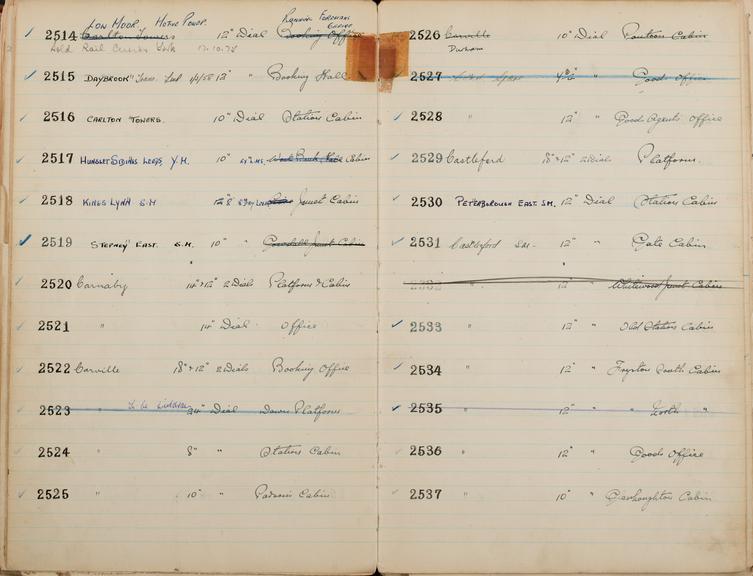 LOW MOOR. MOTIVE POWER. RUNNING FOREMANS
2514 Carlton Towers 12" Dial Booking Office
Sold Rail Curios York 17.10.75
2515 DAYBROOK 12" " Booking Hall
2516 CARLTON TOWERS. 10" Dial Station Cabin
2517 HUNSLET SIDINGS LEEDS Y.M. 10" Cabin
2518 KINGS LYNN S.M 12" 8 DAY Junct Cabin
2519 STEPNEY EAST. S.M. 10" " Junct Cabin
2520 Carnaby 14" & 12" 2 Dials Platform & Cabin
2521 " 14" Dial Office
2522 Carville 18" & 12" 2 Dials Booking Office
2523 24" Dial Down Platform
2524 " 8" " Station Cabin
2525 " 10" " Parsons Cabin
2526 Carville 10" Dial Pontoon Cabin
Durham
2527 " Goods Office
2528 " 12" " Goods Agents Office
2529 Castleford 18" & 12" 2 Dials Platform.
2530 PETERBOROUGH EAST. S.M. 12" Dial Station Cabin
2531 Castleford S.M. 12" " Gate Cabin
2532 12" " Whitwood Junct Cabin
2533 " 12" " Old Station Cabin
2534 " 12" " Fryston South Cabin
2535 " 12" " " North "
2536 " 12" " Goods Office
2537 " 10" " Glasshoughton Cabin